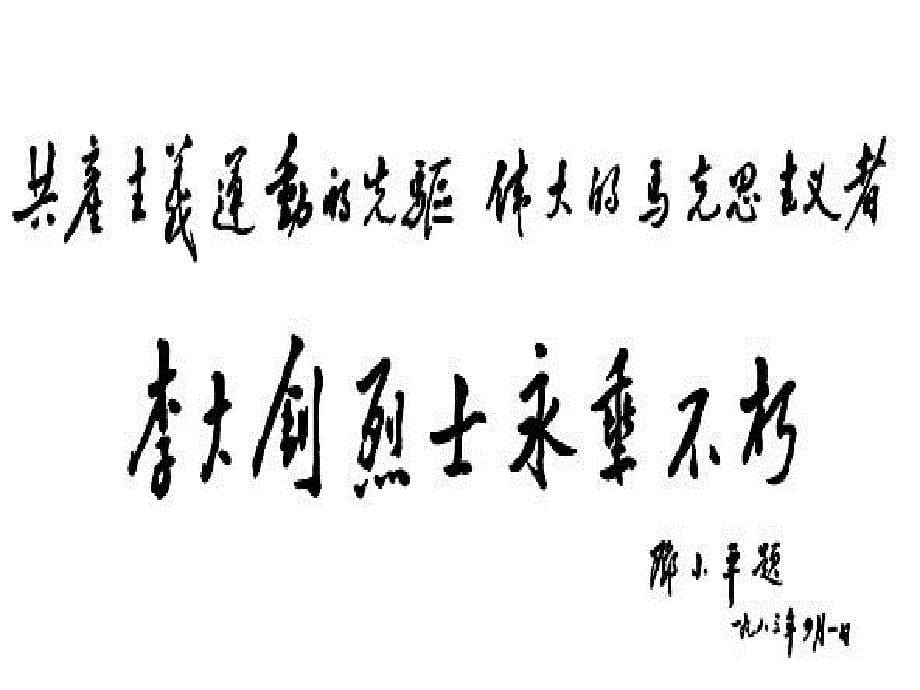 共產主義運動的先驅 伟大的馬克思主义者
李大釗烈士永垂不朽
鄧小平題
一九八三年 月一日